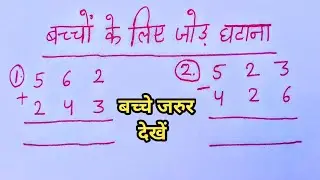 बच्चों के लिए जोड़ घटाना
① 5 6 2
+ 2 4 3
2. 5 2 3
- 4 2 6
बच्चे जरुर
देखें